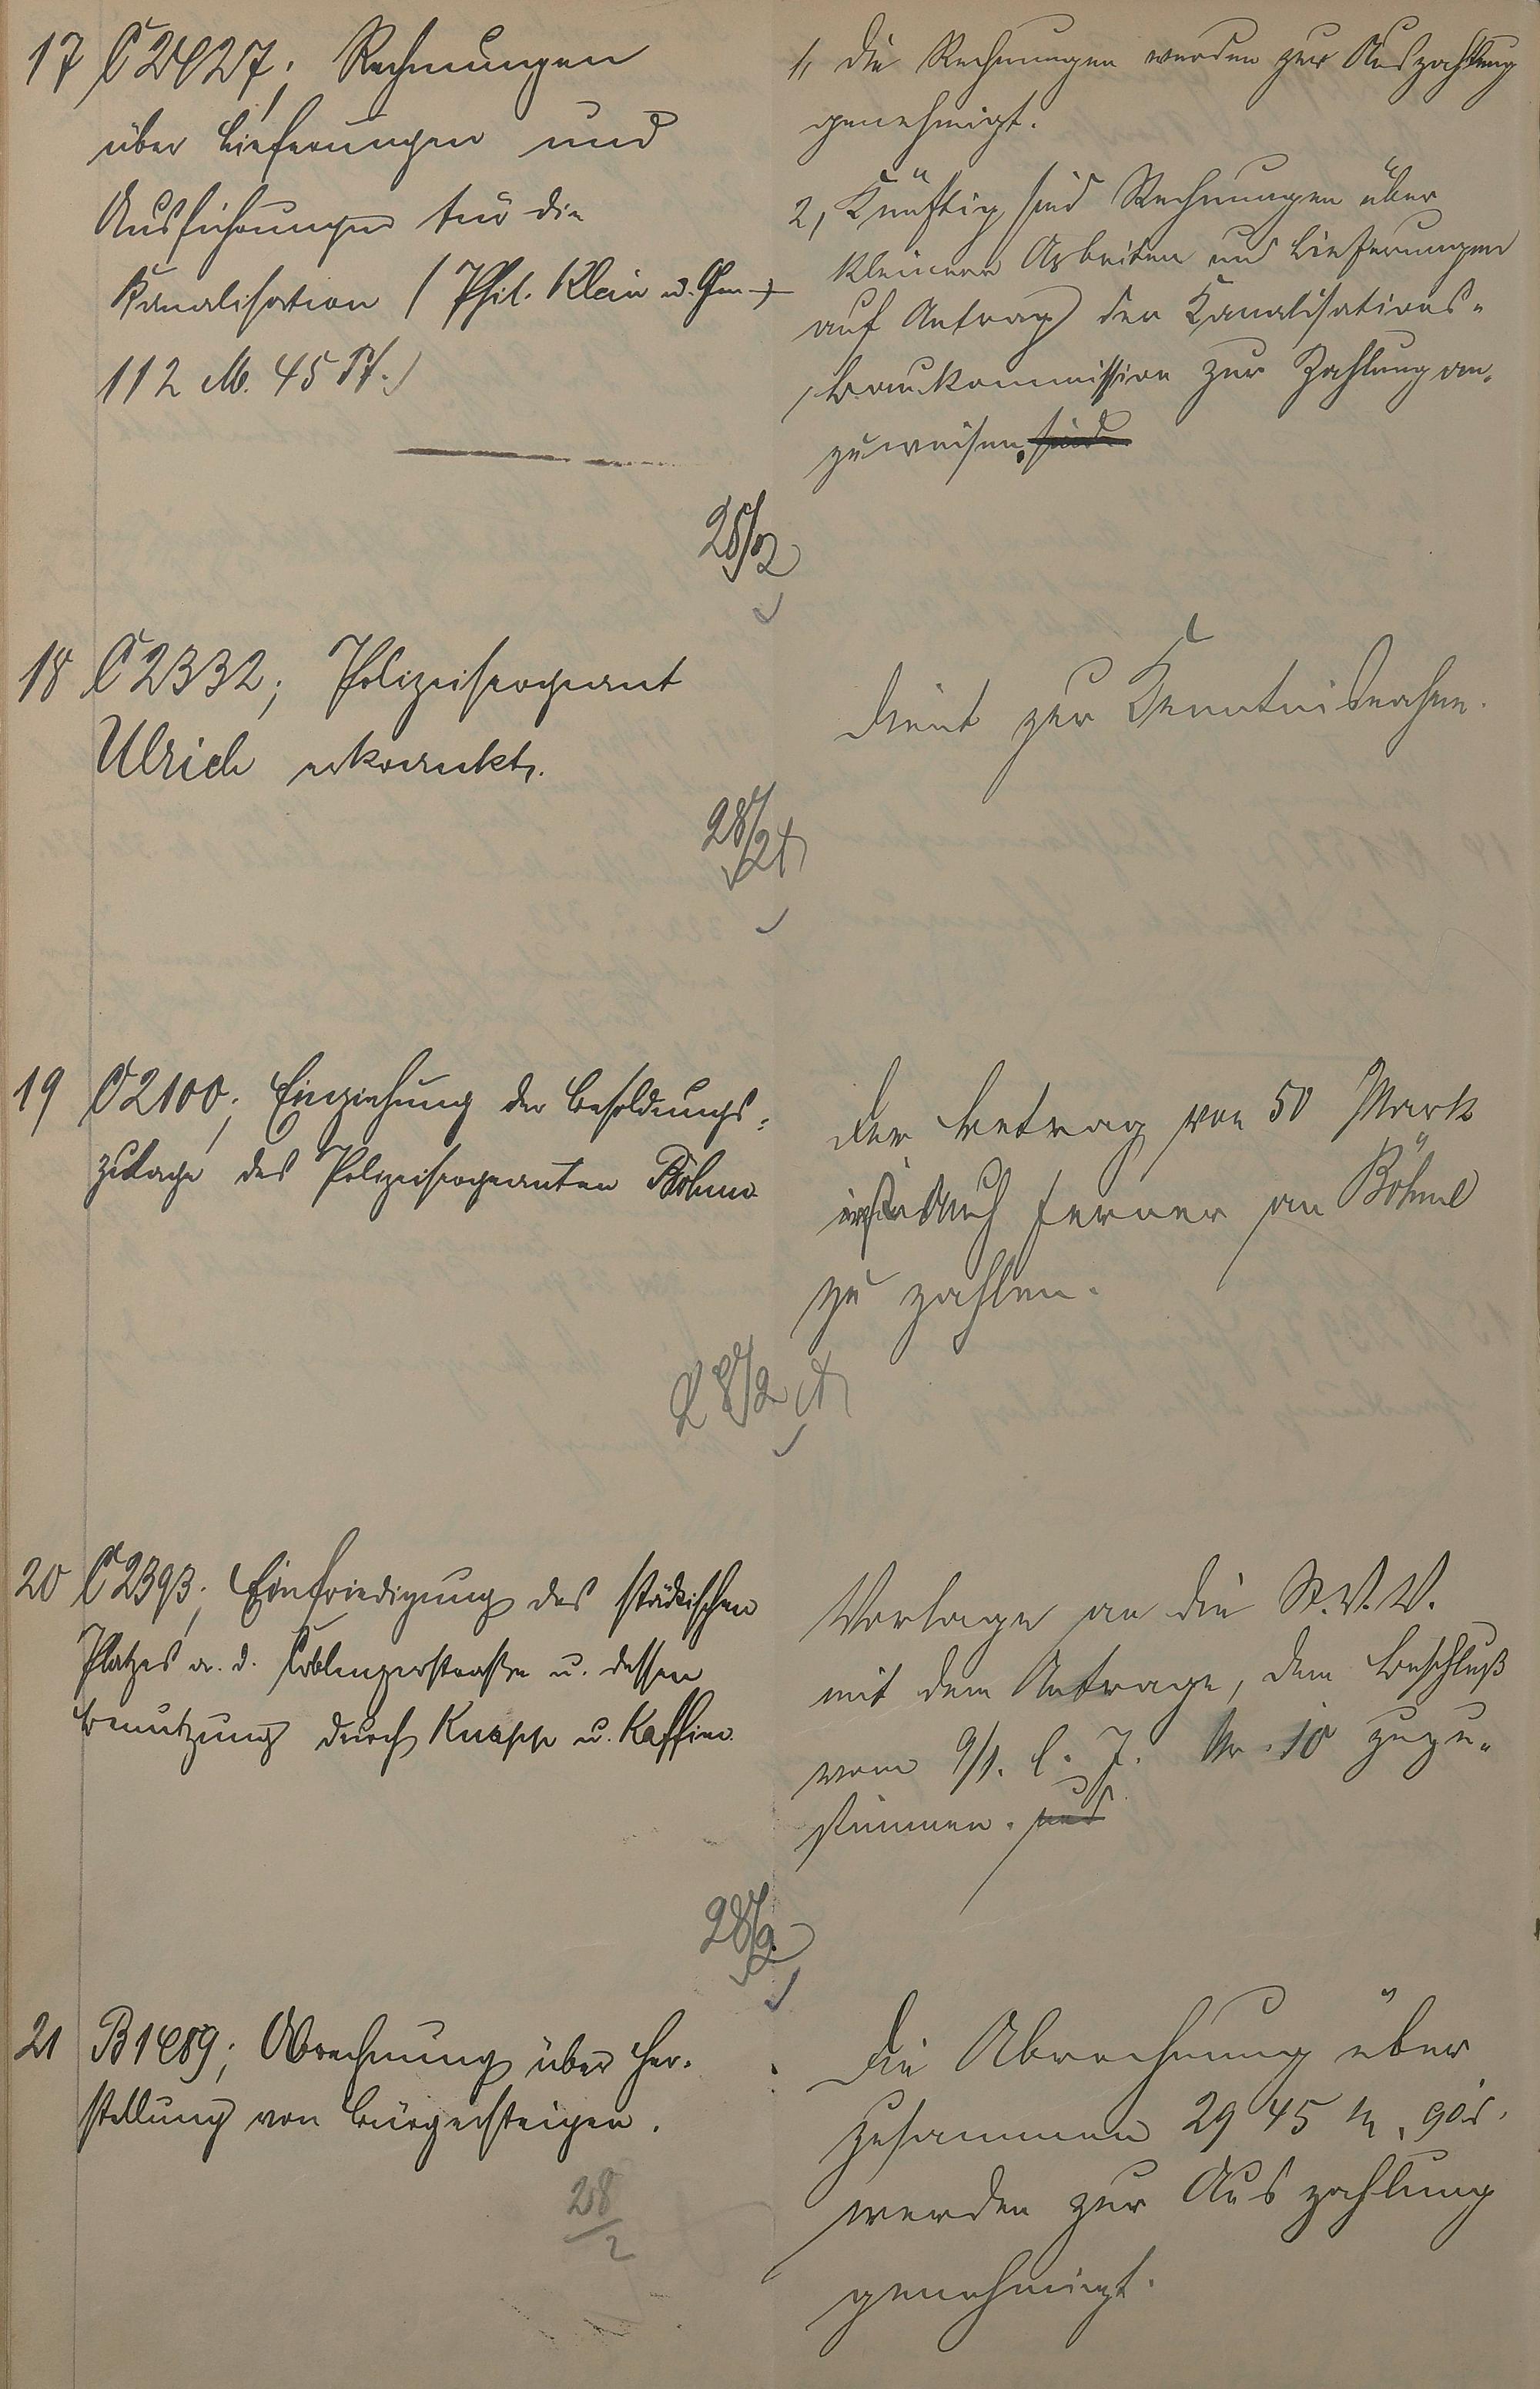 17 C 2427; Rechnungen
über Lieferungen und
Ausführungen für die
Kanalisation (Phil. Klein u. Gen.
112 M. 45 Pf.)
1, Die Rechnungen werden zur Auszahlung
genehmigt.
2, Künftig sind Rechnungen über
kleinere Arbeiten und Lieferungen
auf Antrag der Kanalisations-
baukommission zur Zahlung an-
zuweisen. sind
28/2
18 C 2332; Polizeisergeant
Ulrich erkrankt.
Dient zur Kenntnisnahme.
28/2
19 C 2100; Einziehung der Besoldungs-
zulage des Polizeisergeanten Böhme
Der Betrag von 50 Mark
ist auch ferner an Böhme
zu zahlen.
28/2
20 C 2393; Einfriedigung des städtischen
Platzes a. d. Coblenzerstraße u. dessen
Benutzung durch Knapp u.
Vorlage an die St.V.V.
mit dem Antrage, dem Beschluß
vom 9/1. l. J. Nr. 10 zuzu-
stimmen. und
28/2
21 B 1489; Abrechnung über Her-
stellung von Bürgersteigen.
Die Abrechnung über
zusammen 2945 M. 90
werden zur Auszahlung
genehmigt.
28/2